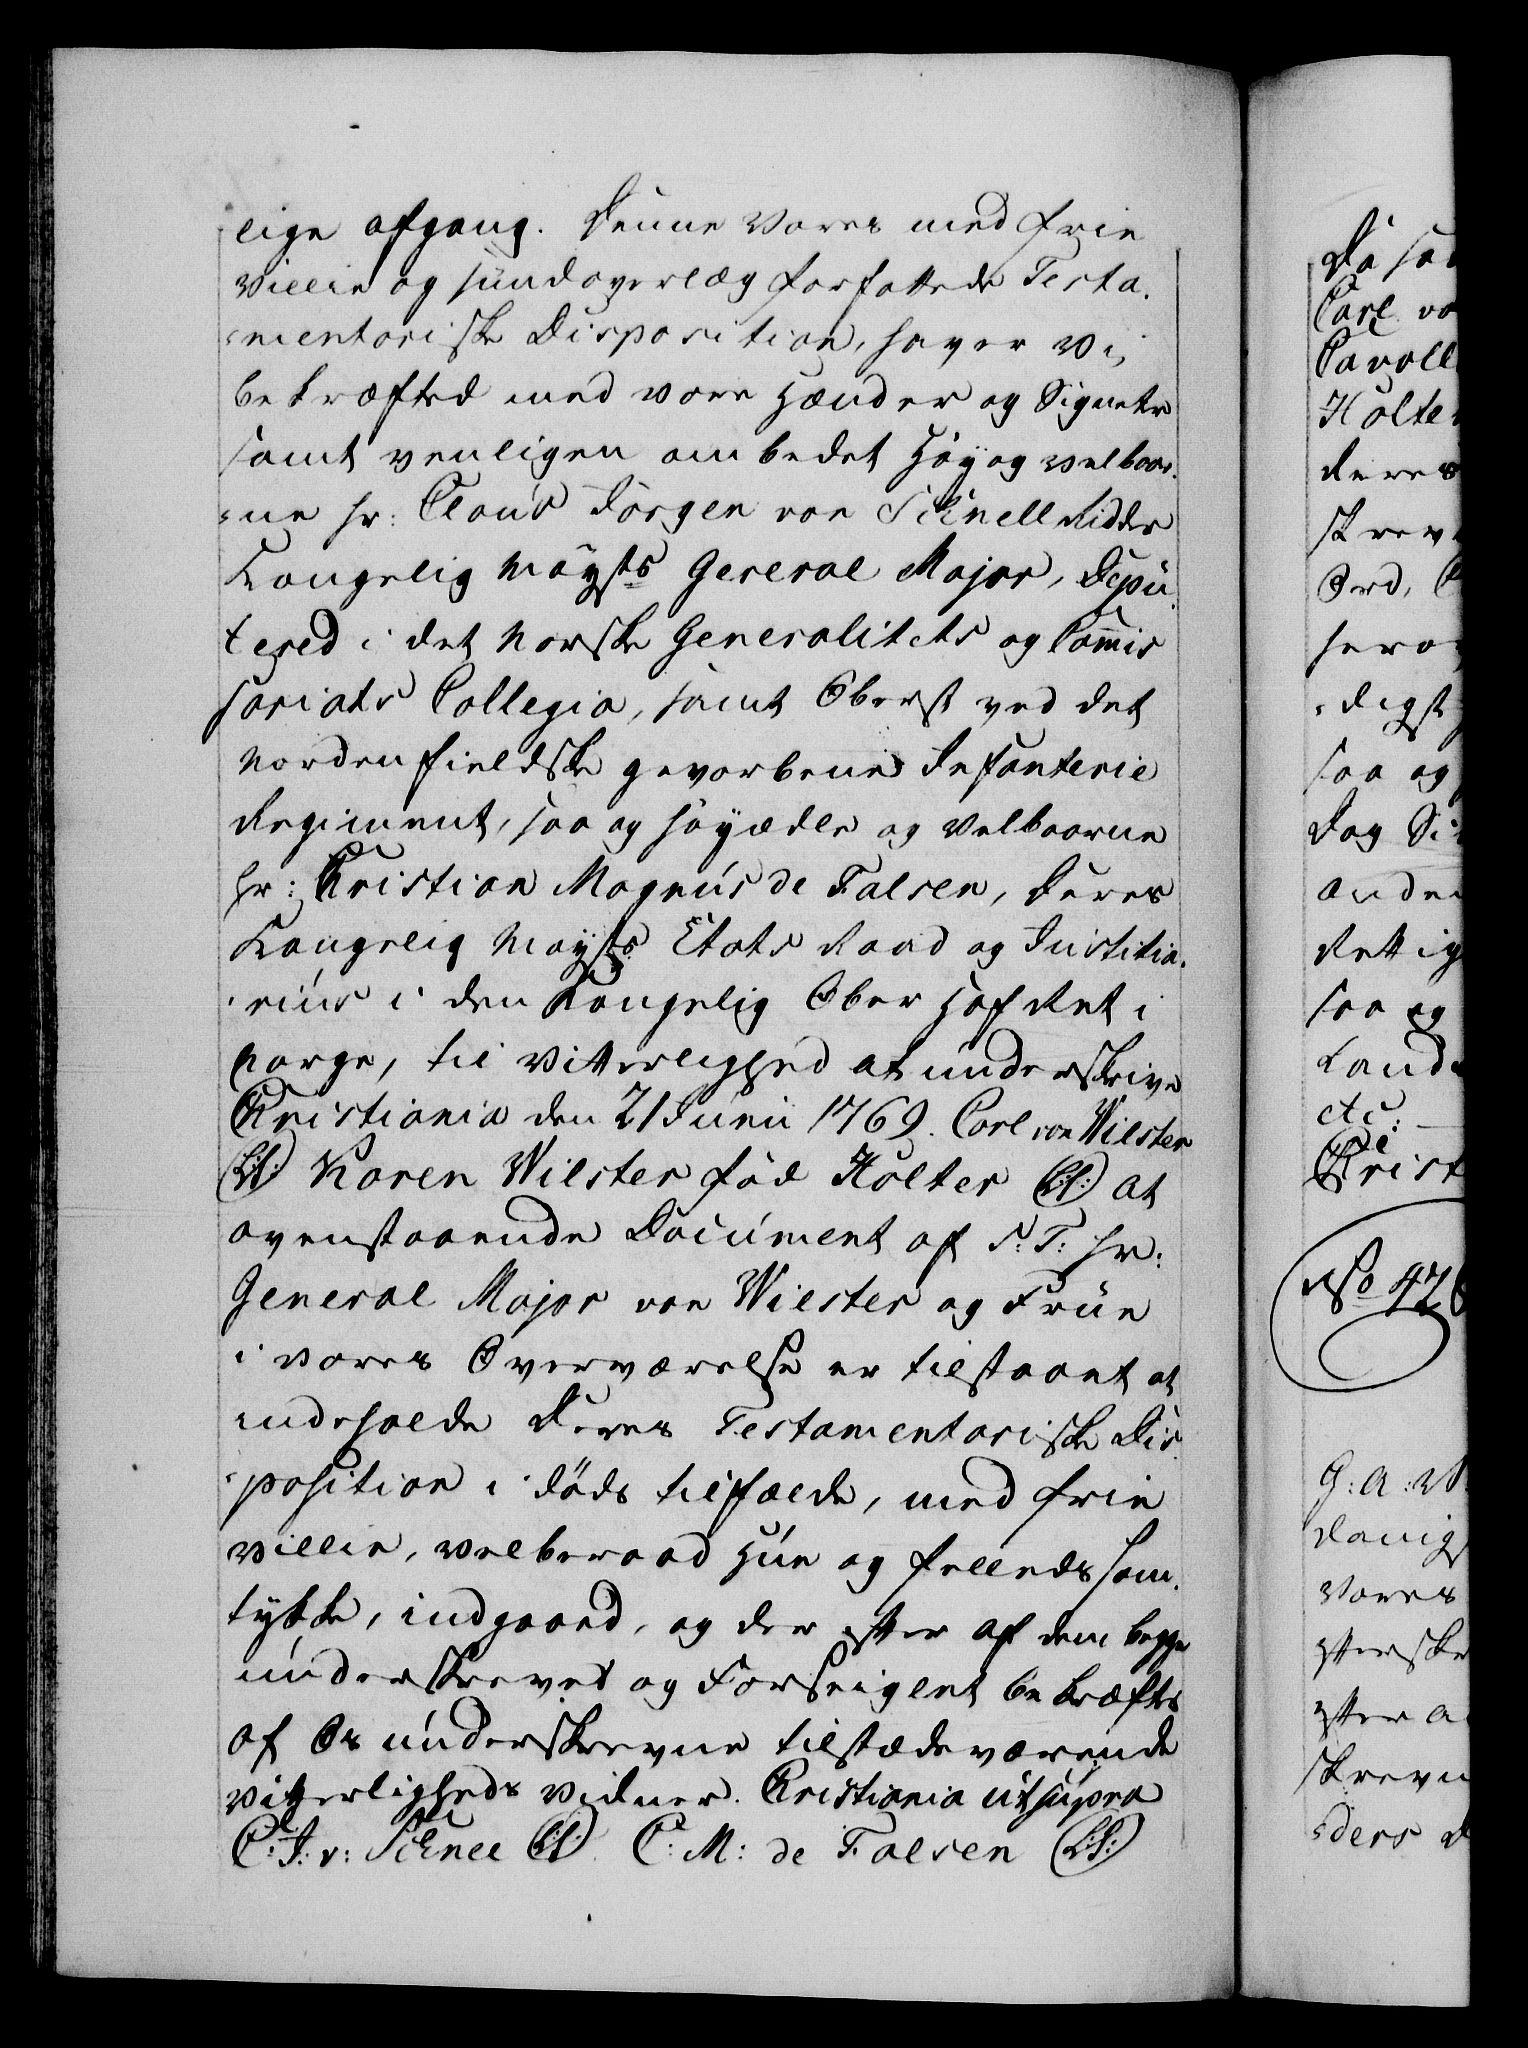 lige afgang. Denne Vores med frie
Villie og sundoverlæg forfattede Testa-
-mentariske Disposition, haver Vi,
bekræfted med vore Hænder og Signeter
samt venligen ombedet Høy og velbaar-
-ne hr: Claus Jörgen von Schnell Ridder
Kongelig Mayts General Major, Depu-
tered i det Norske Generalitets og Com̄is
sariats Collegio, samt Oberst ved det
Nordenfieldske gevorbene Infanterie
Regiment, saa og høyædle og Velbaarne
hr: Christian Magnus de Falsen, Deres
Kongelig Mayts Etats Raad og Justitia-
-rius i den Kongelig Ober Hof Ret i
Norge, til Vitterlighed at underskrive
Christiania den 21 Junii 1769. Carl von Wilster
(L:S:) Karen Wilster fød Holter (L:S:) At
ovenstaaende Document af S: T: hr:
General Major von Wilster og Frue
i vores Overværelse er tilstaaet at
indeholde Deres Testamentariske Dis
-position i døds tilfælde, med frie
Villie, velberaad Hue og fælleds sam-
tykke, indgaaed, og der efter af dem begge
underskrevet og Forseiglet bekræftes
af Os underskrevne tilstædeværende
Vitterligheds Vidner. Christiania ut supra
C: J: v: Schnel (L:S:) C: M: de Falsen (L:S:)
Da sa
Carl vo
Cavall
Holter
deres
skrev
Ord,
hero
-digst
saa og
Dag Si
anden
Rettig
saa og
Lande
etc:
Christ
No 426
G: A: V
danig
Vores
efterske
efter a
skrevn
-ders D